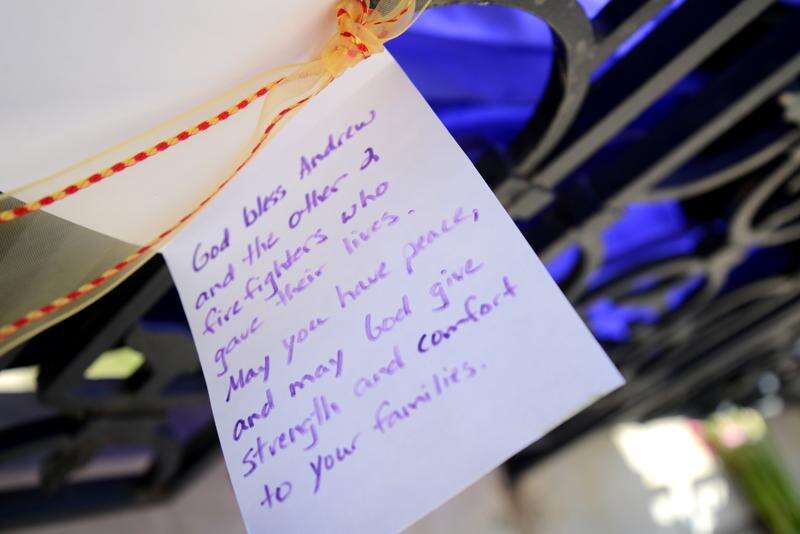 God bless Andrew
and the other 2
firefighters who
gave their lives.
May you have peace,
and may God give
strength and comfort
to your families.